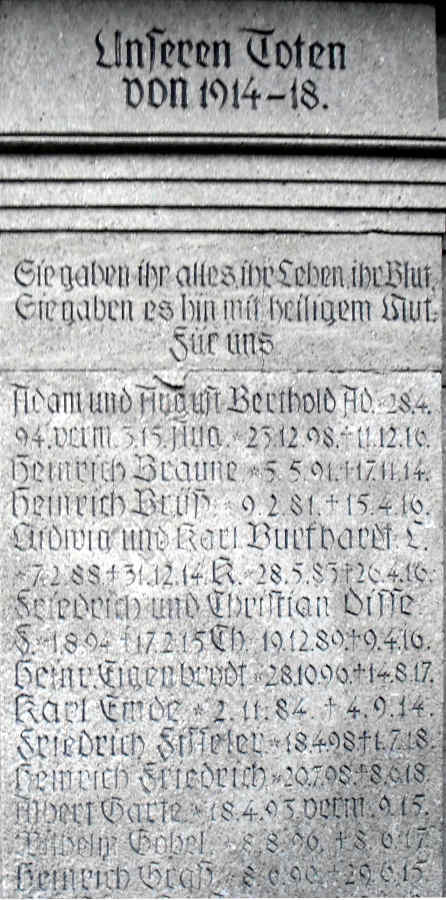 Unseren Toten
von 1914-18.
Sie gaben ihr alles, ihr Leben, ihr Blut,
Sie gaben es hin mit heiligem Mut.
Für uns
Adam und August Berthold Ad. *28.4.
94. verm. 3.15. Aug. *25.12.98. †11.12.16.
Heinrich Braune *5.5.91. †17.11.14.
Heinrich Brüß *9.2.81. †15.4.16.
Ludwig und Karl Burkhardt. L.
*7.2.88 †31.12.14. K. *28.5.85 †26.4.16.
Friedrich und Christian Disse
F. *1.8.94 †17.2.15 Ch. 19.12.89. †9.4.16.
Heinr. Eigenbrodt *28.10.96. †14.8.17.
Karl Emde *2.11.84. †4.9.14.
Friedrich Fisseler *18.4.98 †1.7.18.
Heinrich Friedrich *20.7.98. †8.6.18.
Albert Garte *18.4.93. verm. 9.15.
Wilhelm Göbel *8.8.96. †8.6.17
Heinrich Graß *8.6.90. †29.6.15